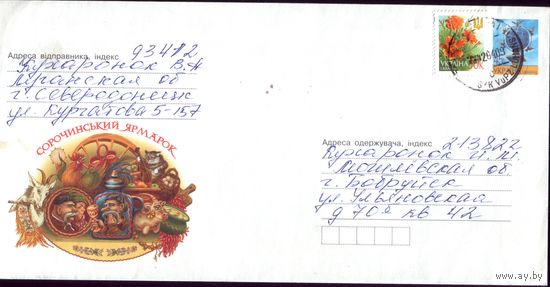 Адреса відправника, індекс 93412
Кухаронок В.А
Луганская об
г. Северодонецк
ул. Курчатова 5-157
СОРОЧИНСЬКИЙ ЯРМАРОК
УКРАЇНА
Адреса одержувача, індекс 213822
Кухаронок
Могилёвская об.
г. Бобруйск
ул. Ульяновская
д 70а кв 42
www.ay.by